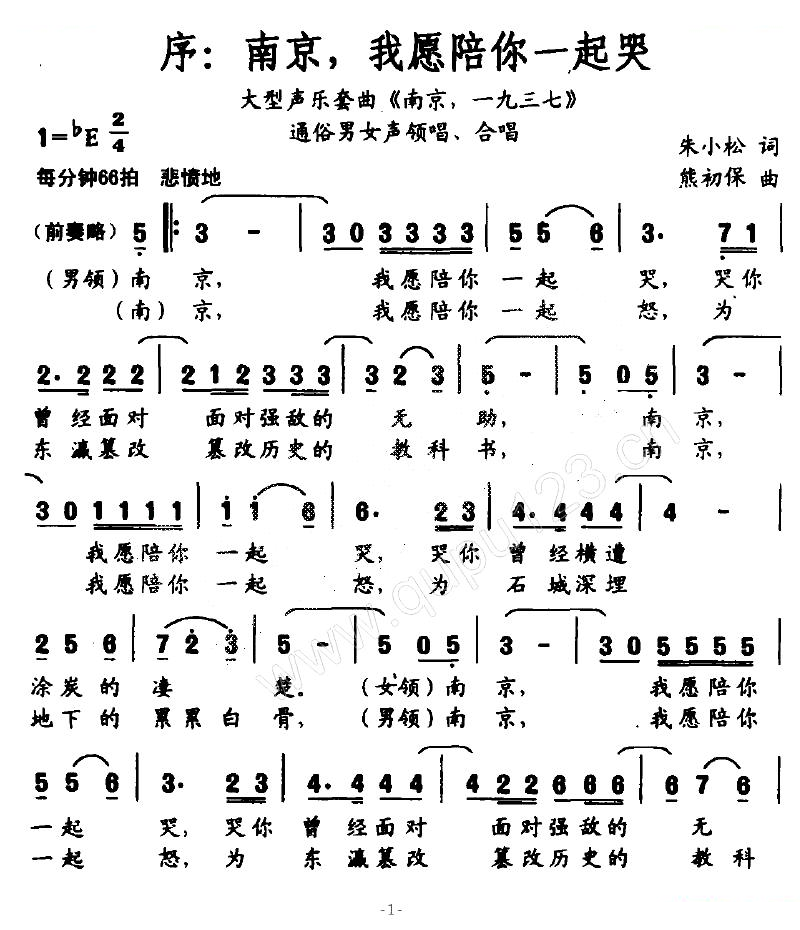 序：南京，我愿陪你一起哭
大型声乐套曲《南京，一九三七》
1=♭E 2/4
通俗男女声领唱、合唱
朱小松 词
每分钟66拍 悲愤地
熊初保 曲
（前奏略） 5 |: 3 - | 3 0 3 3 3 3 | 5 5 6 | 3· 7 1 |
（男领）南 京， 我愿陪你 一 起 哭，哭你
（南）京， 我愿陪你 一 起 怒，为
2· 2 2 2 | 2 1 2 3 3 3 | 3 2 3 | 5 - | 5 0 5 | 3 - |
曾 经面对 面对强敌的 无 助， 南 京，
东 瀛篡改 篡改历史的 教科书， 南 京，
3 0 1 1 1 1 | 1 1 6 | 6· 2 3 | 4· 4 4 4 | 4 - |
我愿陪你 一 起 哭，哭你 曾 经横遭
我愿陪你 一 起 怒，为 石 城深埋
2 5 6 | 7 2 3 | 5 - | 5 0 5 | 3 - | 3 0 5 5 5 5 |
涂炭的 凄 楚。 （女领）南 京， 我愿陪你
地下的 累累白骨，（男领）南 京， 我愿陪你
5 5 6 | 3· 2 3 | 4· 4 4 4 | 4 2 2 6 6 6 | 6 7 6 |
一 起 哭，哭你 曾 经面对 面对强敌的 无
一 起 怒，为 东 瀛篡改 篡改历史的 教科
www.qupu123.cn
-1-